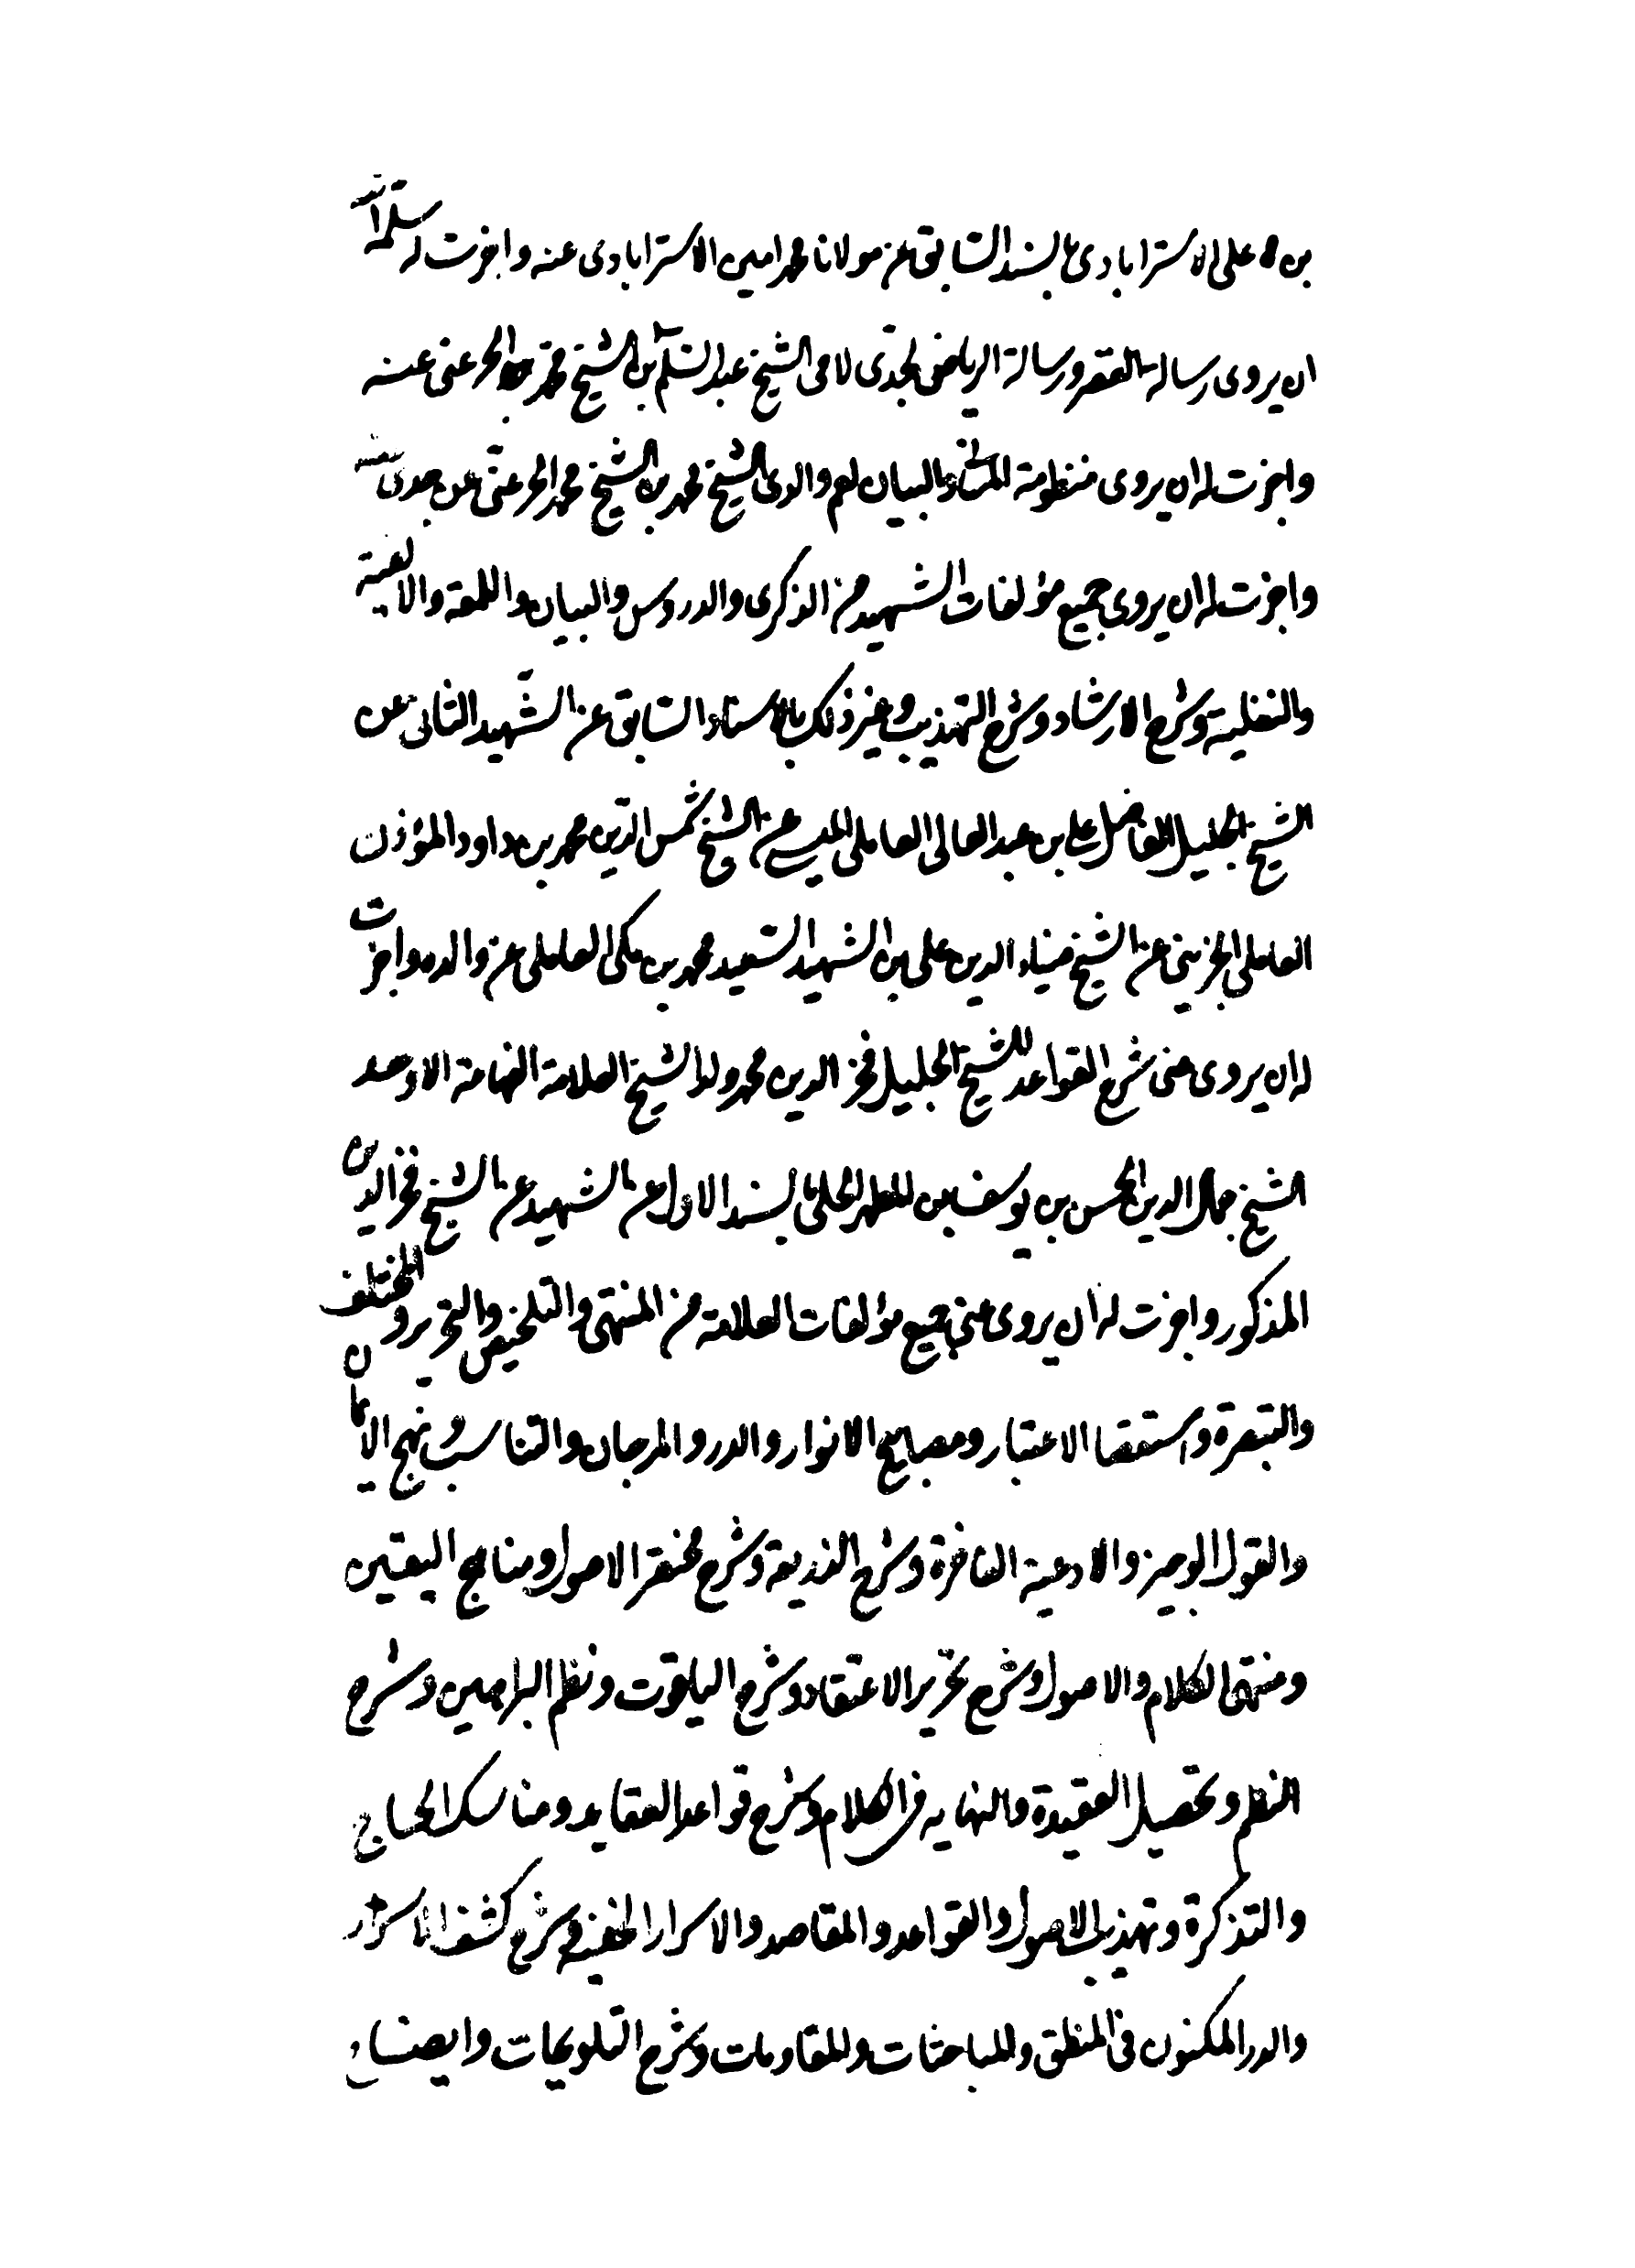 بن على الاسترابادى بالسند السابق عن مولانا محمد امين الاسترابادى عنه واجزت له سلمه الله
ان يروى رسالة القصر ورسالة الرياض لجدى لامى الشيخ عبد السلام بن الشيخ محمد الحر عنى عنه
واجزت له ان يروى منظومة المعانى والبيان لعم والدى الشيخ محمد بن الشيخ محمد الحر عنى عن جدى عنه
واجزت له ان يروى جميع مؤلفات الشهيد من الذكرى والدروس والبيان واللمعة والالفية
والنفلية وشرح الارشاد وشرح التهذيب وغير ذلك بالاسناد السابق عن الشهيد الثانى عن
الشيخ الجليل الفاضل على بن عبد العالى العاملى الميسى عن الشيخ شمس الدين محمد بن داود المؤذن
العاملى الجزينى عن الشيخ ضياء الدين على بن الشهيد السعيد محمد بن مكى العاملى عن والده واجزت
له ان يروى عنى شرح القواعد للشيخ الجليل فخر الدين محمد ولد الشيخ العلامة الفهامة الاوحد
الشيخ جمال الدين الحسن بن يوسف بن المطهر الحلى بالسند الاول عن الشهيد عن الشيخ فخر الدين
المذكور واجزت له ان يروى عنى جميع مؤلفات العلامة من المنتهى والتلخيص والتحرير والمختلف
والتبصرة واستقصا الاعتبار ومصابيح الانوار والدرر والمرجان والتناسب ونهج الايمان
والقول الوجيز والادعية الفاخرة وشرح الذريعة وشرح مختصر الاصول ومناهج اليقين
ومنتهى الكلام والاصول وشرح تحرير الاعتقاد وشرح الياقوت ونظم البراهين وشرح
النظم وتحصيل العقيدة والنهايه فى الكلام وشرح قواعد العقايد ومناسك الحاج
والتذكرة وتهذيب الاصول والقواعد والمقاصد والاسرار الخفية وشرح كشف الاسرار
والدر المكنون فى المنطق والمباحثات والمقاومات وشرح التلويحات وايضاح